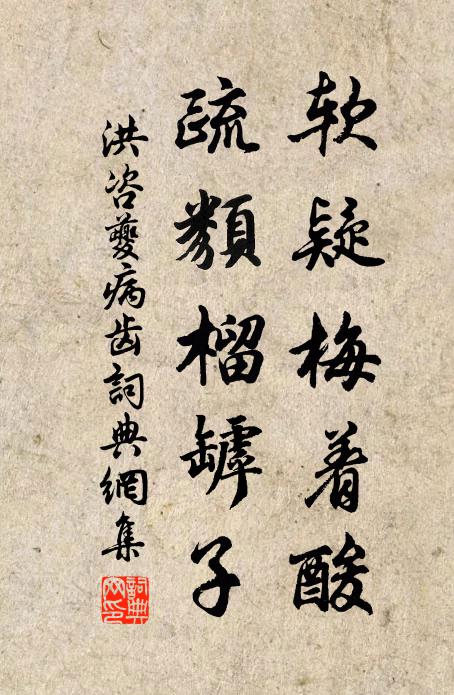 軟疑梅着酸
疏類榴罅子
洪咨夔病齿詞典網集
詞典网印